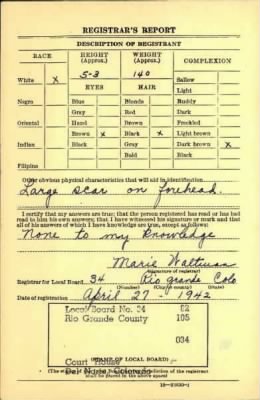 REGISTRAR'S REPORT
DESCRIPTION OF REGISTRANT
RACE HEIGHT (Approx.) WEIGHT (Approx.) COMPLEXION
White X 5-3 140 Sallow
EYES HAIR Light
Negro Blue Blonde Ruddy
Gray Red Dark
Oriental Hazel Brown Freckled
Brown X Black X Light brown
Indian Black Gray Dark brown X
Bald Black
Filipino
Other obvious physical characteristics that will aid in identification
Large scar on forehead.
I certify that my answers are true; that the person registered has read or has had
read to him his own answers; that I have witnessed his signature or mark and that
all of his answers of which I have knowledge are true, except as follows:
None to my Knowledge
Marie Waltman
(Signature of registrar)
Registrar for Local Board 34 Rio grande Colo
(Number) (City or county) (State)
Date of registration April 27 - 1942
Local Board No. 34 82
Rio Grande County 105
034
Court House
(STAMP OF LOCAL BOARD)
Del Norte Colorado
shall be placed in the above space)